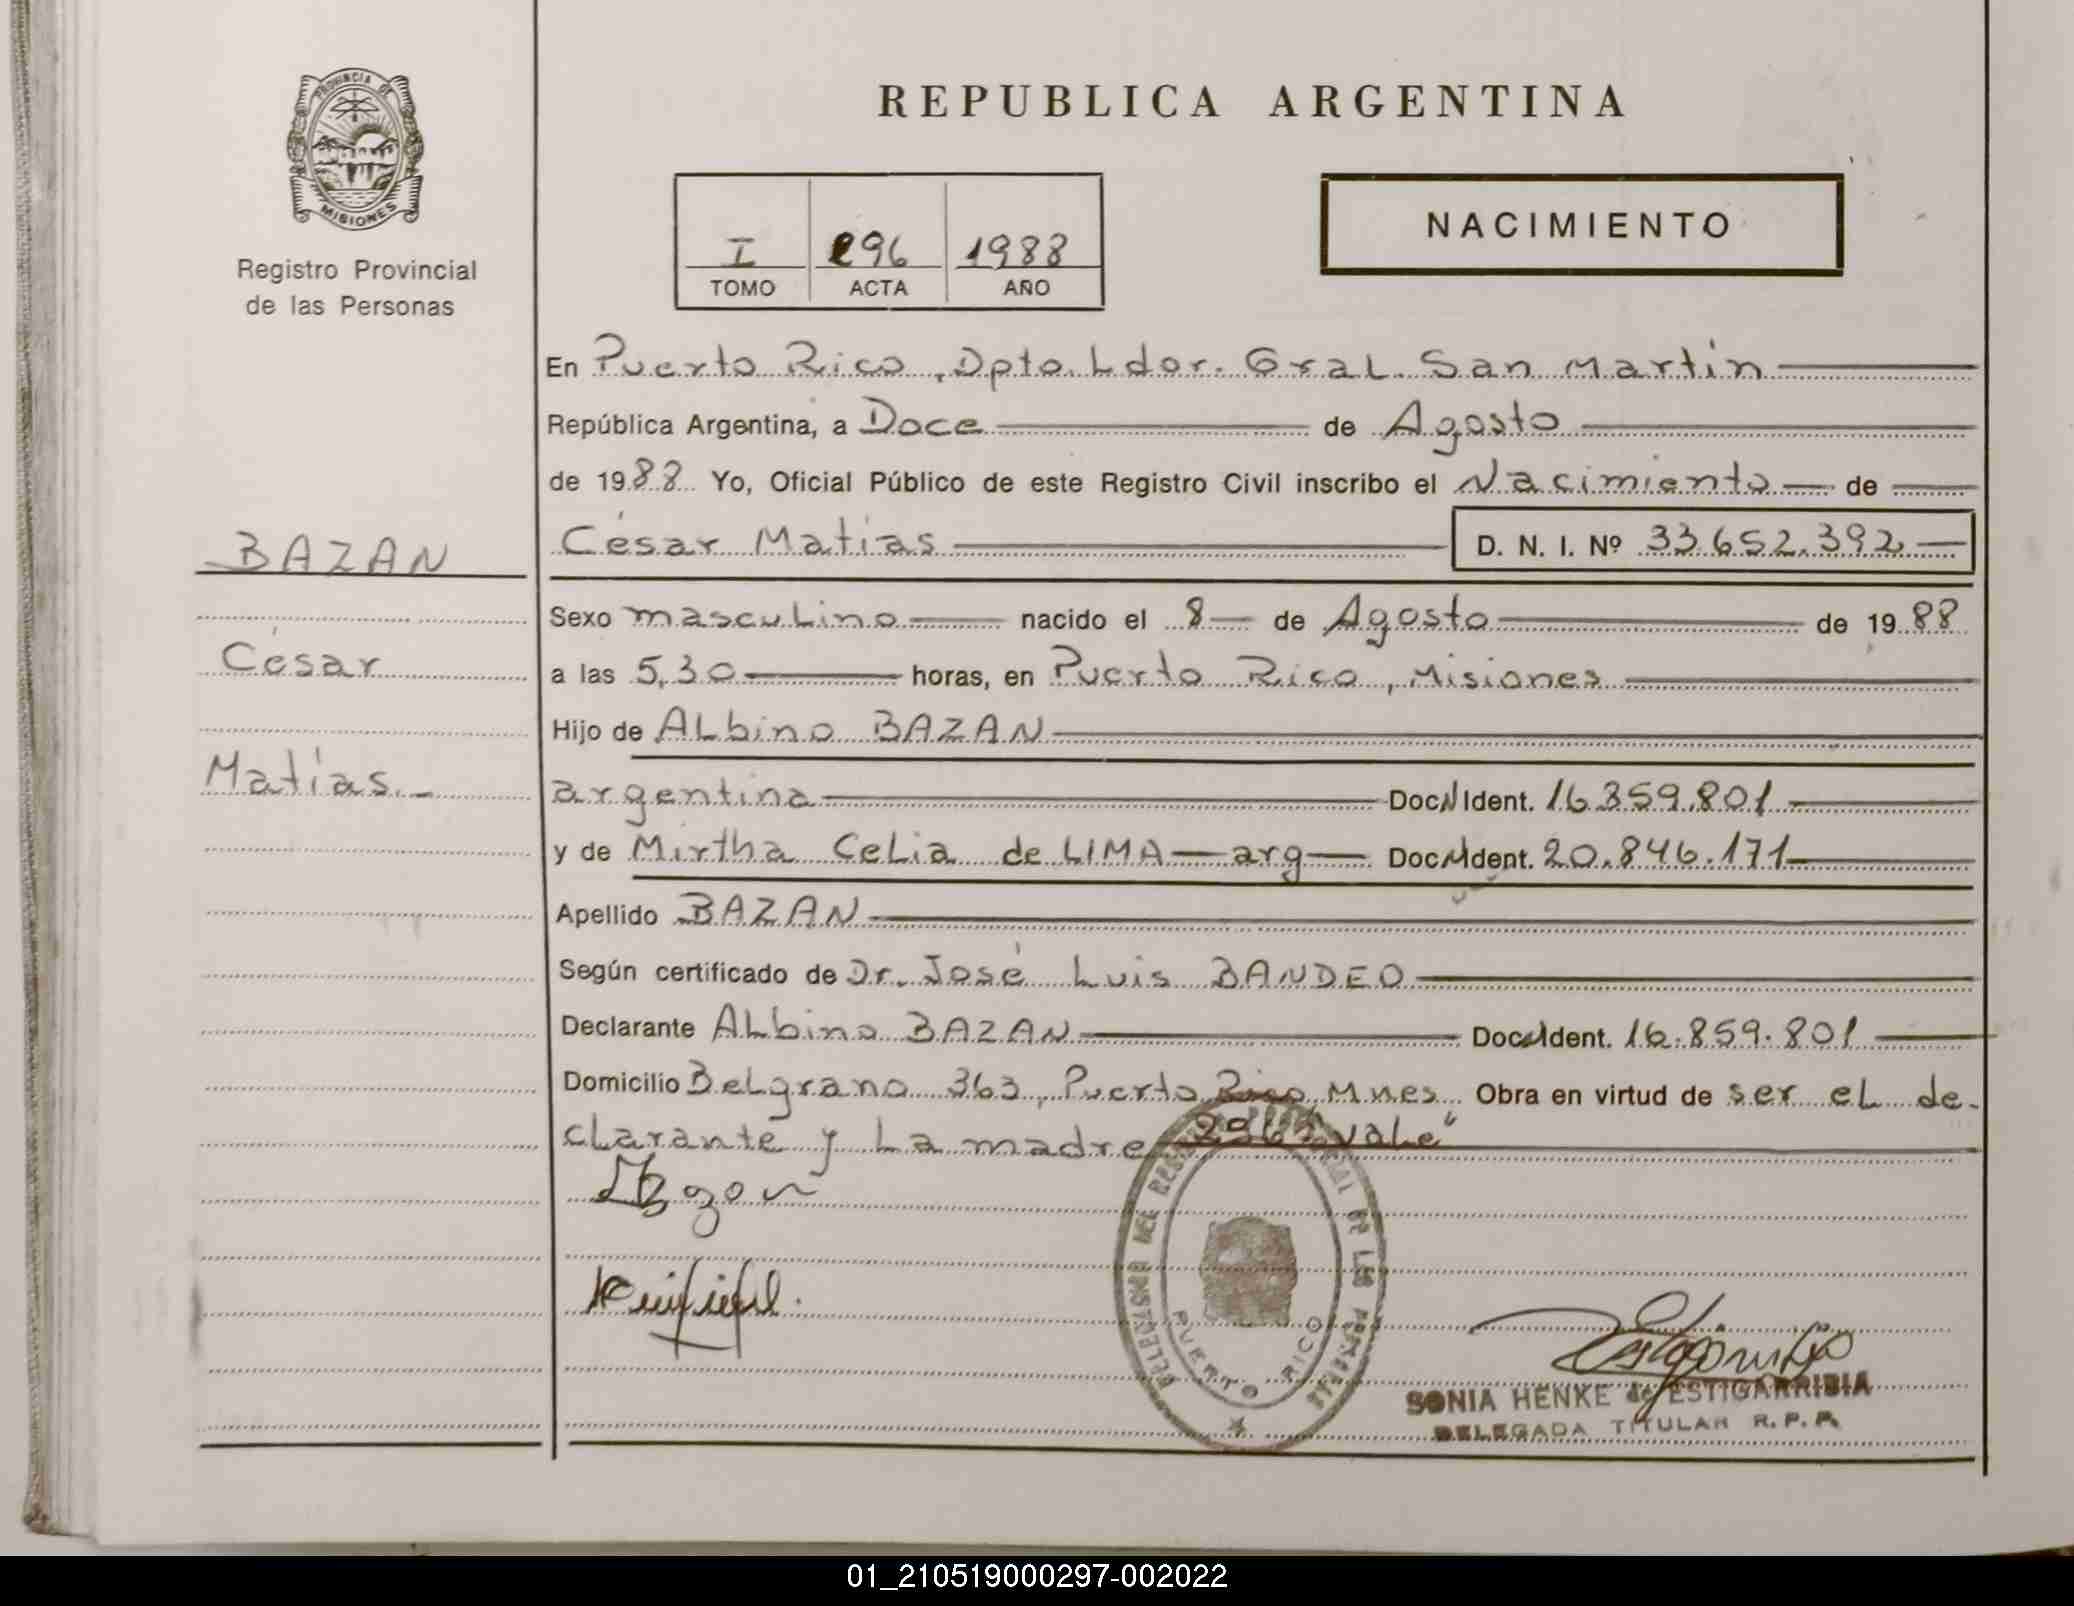 PROVINCIA DE
MISIONES
Registro Provincial
de las Personas
BAZAN
César
Matías.-
REPUBLICA ARGENTINA
I 296 1988
TOMO ACTA AÑO
NACIMIENTO
En Puerto Rico, Dpto. Ldor. Gral. San Martín
República Argentina, a Doce de Agosto
de 1988 Yo, Oficial Público de este Registro Civil inscribo el Nacimiento de
César Matías D. N. I. Nº 33.652.392
Sexo masculino nacido el 8 de Agosto de 1988
a las 5,30 horas, en Puerto Rico, Misiones
Hijo de Albino BAZAN
argentina Doc. Ident. 16.859.801
y de Mirtha Celia de LIMA - arg Doc. Ident. 20.846.171
Apellido BAZAN
Según certificado de Dr. José Luis BANDEO
Declarante Albino BAZAN Doc. Ident. 16.859.801
Domicilio Belgrano 363, Puerto Rico, Mnes. Obra en virtud de ser el de-
clarante y la madre "296" vale"
DELEGACION DEL REGISTRO PROVINCIAL DE LAS PERSONAS
PUERTO RICO
SONIA HENKE de ESTIGARRIBIA
DELEGADA TITULAR R. P. P.
01_210519000297-002022